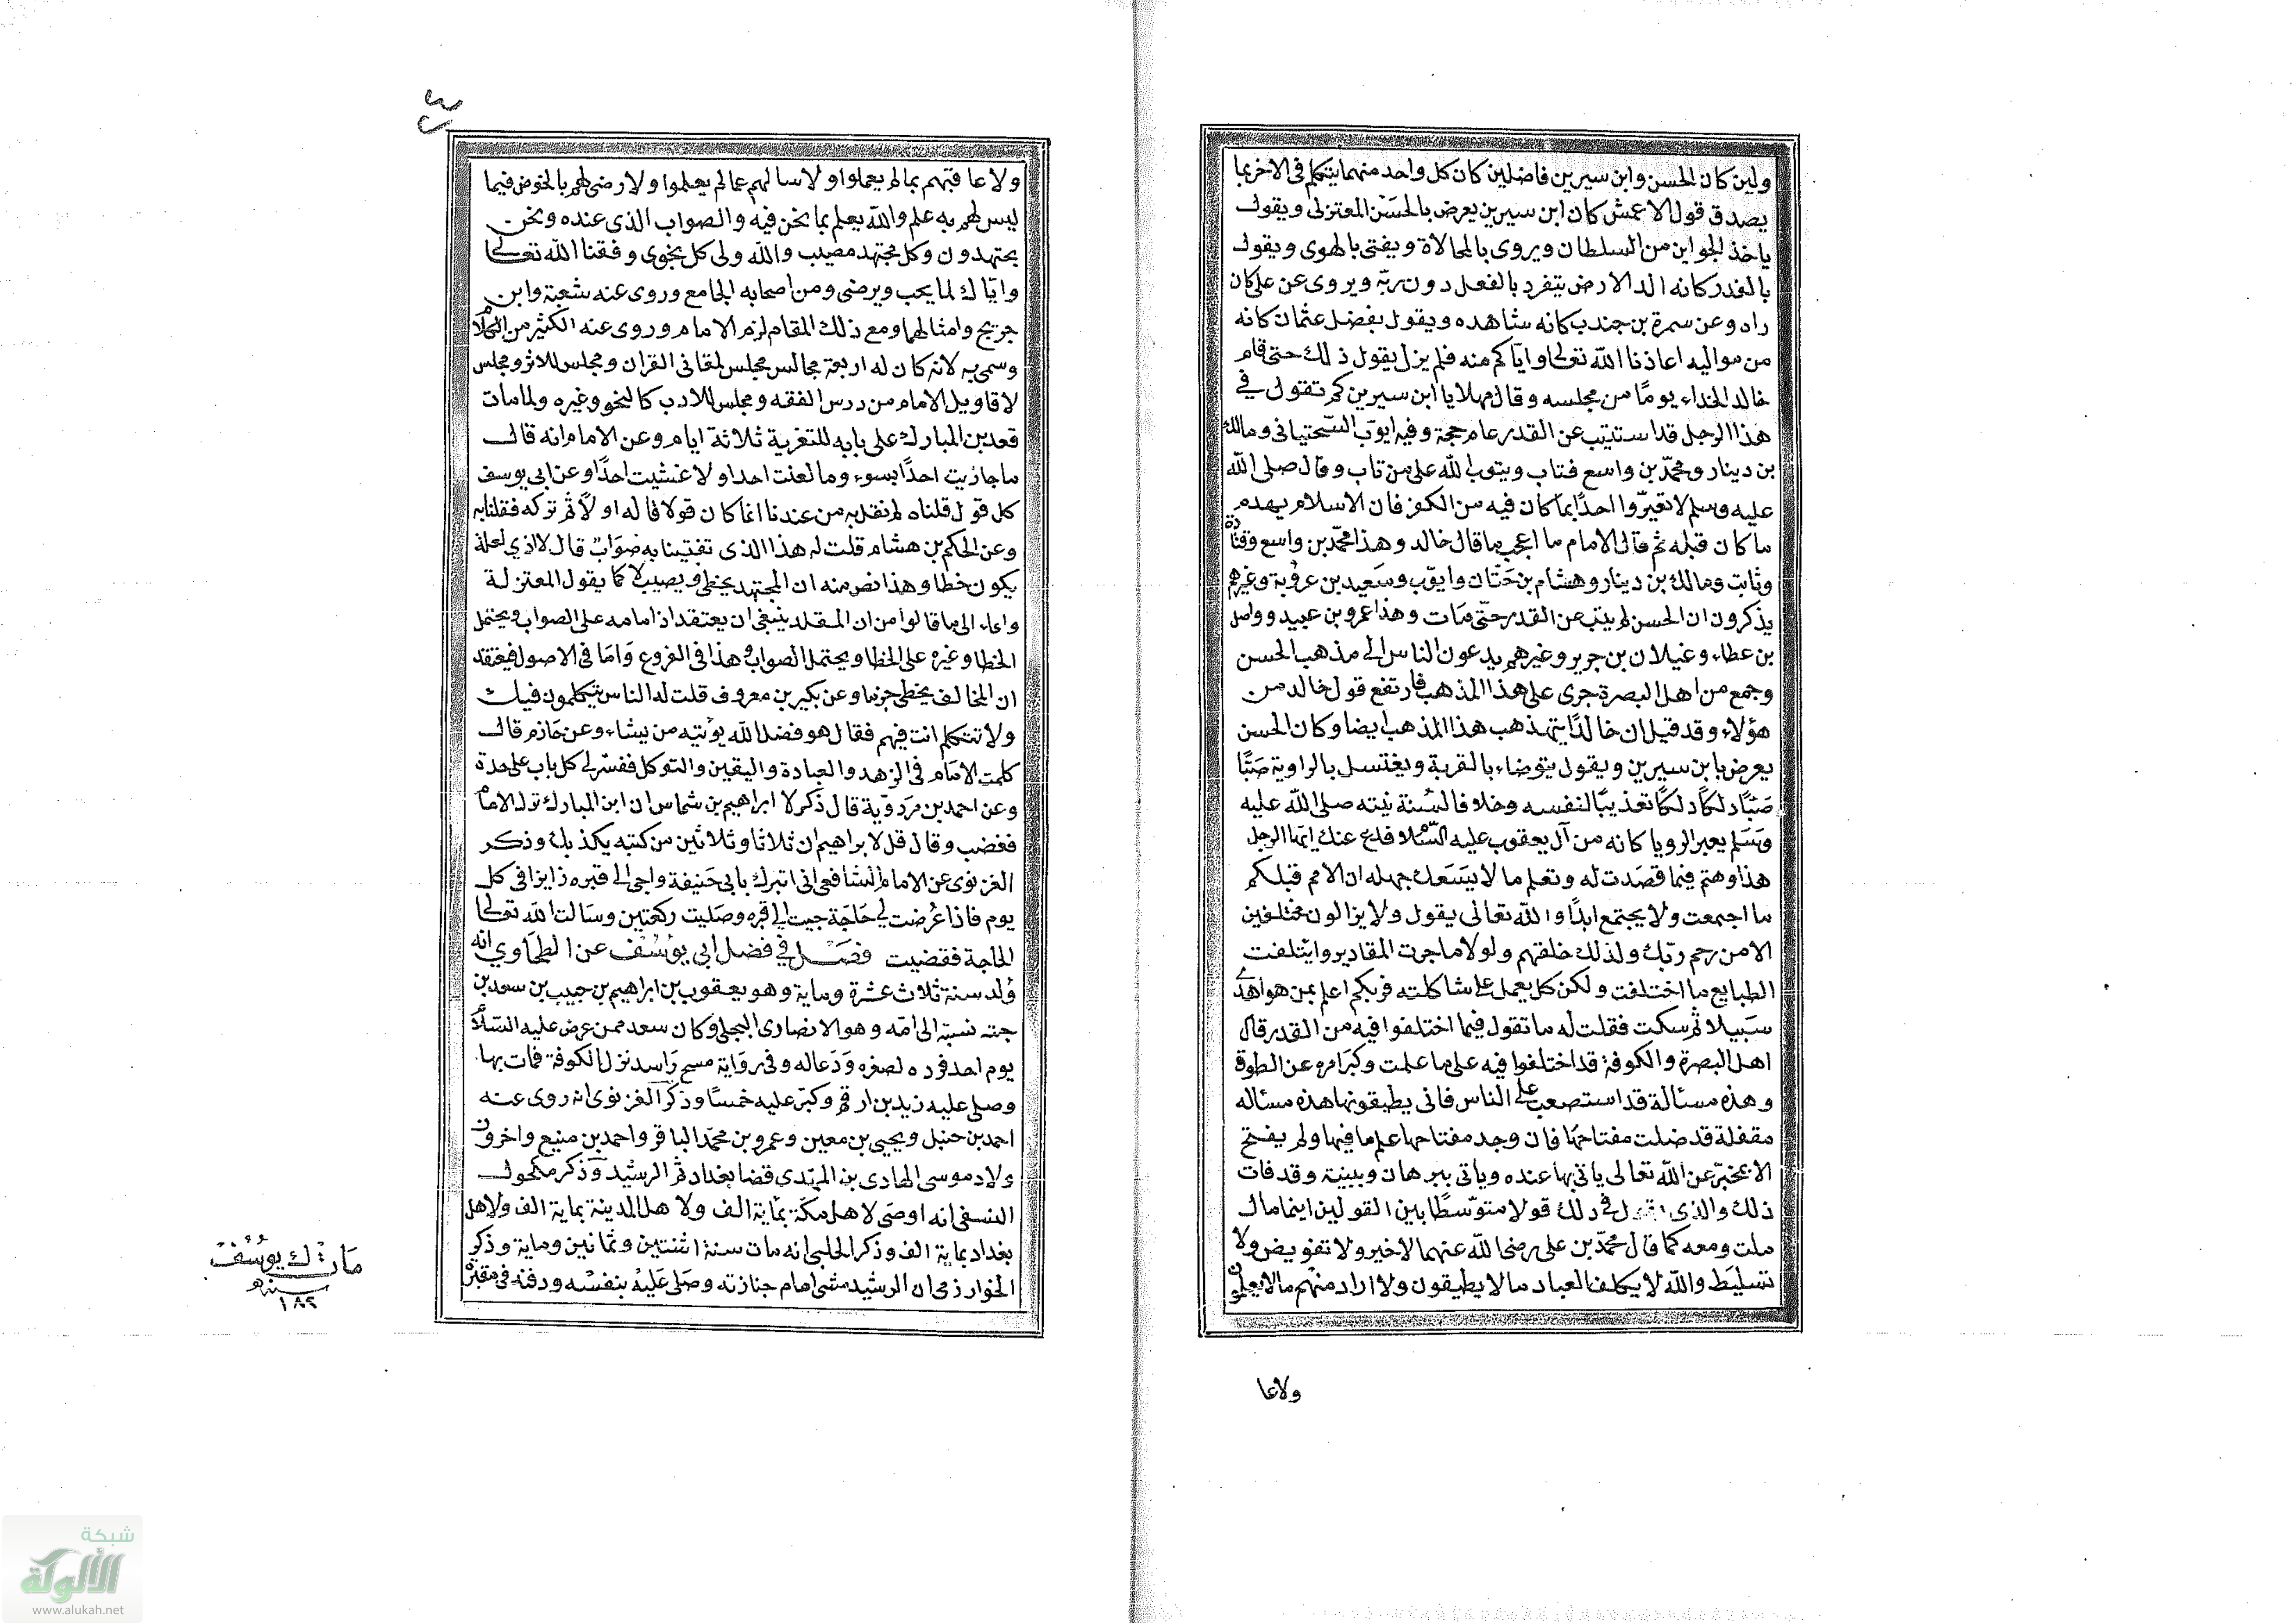 ولين كان الحسن وابن سيرين فاضلين كان كل واحد منهما يتكلم فى الاخر بما
يصدق قول الاعمش كان ابن سيرين يعرض بالحسن المعتزلى ويقول
ياخذ الجواين من السلطان ويروى بالمحالاة ويفتى بالهوى ويقول
بالقدر كانه الد الارض يتفرد بالفعل دون ربه ويروى عن على كان
راه وعن سمرة بن جندب كانه شاهده ويقول بفضل عثمان كانه
من مواليه اعاذنا الله تعالى واياكم منه فلم يزل يقول ذلك حتى قام
خالد الحذاء يوما من مجلسه وقال مهلا يا ابن سيرين كم تقول فى
هذا الرجل قد استتيب عن القدر عام حجة وفيه ايوب السختيانى ومالك
بن دينار ومحمد بن واسع فتاب ويتوب الله على من تاب وقال صلى الله
عليه وسلم لا تعيروا احدا بما كان فيه من الكفر فان الاسلام يهدم
ما كان قبله ثم قال الامام ما اعجب ما قال خالد وهذا محمد بن واسع وقتادة
وثابت ومالك بن دينار وهشام بن حسان وايوب وسعيد بن عروبة وغيرهم
يذكرون ان الحسن لم يتب عن القدر حتى مات وهذا عمرو بن عبيد وواصل
بن عطاء وغيلان بن جرير وغيرهم يدعون الناس الى مذهب الحسن
وجمع من اهل البصرة جرى على هذا المذهب فارتفع قول خالد من
هؤلاء وقد قيل ان خالدا يتمذهب هذا المذهب ايضا وكان الحسن
يعرض بابن سيرين ويقول يتوضاء بالقربة ويغتسل بالراوية صبا
صبا دلكا دلكا تعذيبا لنفسه وخلافا لسنة نبيه صلى الله عليه
وسلم يعبر الرويا كانه من آل يعقوب عليه السلام فدع عنك ايها الرجل
هذا وهتم فيما قصدت له وتعلم ما لا يسعك جهله ان الامم قبلكم
ما اجمعت ولا يجتمع ابدا والله تعالى يقول ولا يزالون مختلفين
الا من رحم ربك ولذلك خلقهم ولولا ما جرت المقادير وايتلفت
الطبايع ما اختلفت ولكن كل يعمل على شاكلته فربكم اعلم بمن هو اهدى
سبيلا ثم سكت فقلت له ما تقول فيما اختلفوا فيه من القدر قال
اهل البصرة والكوفة قد اختلفوا فيه على ما علمت وكبر امره عن الطوق
وهذه مسئالة قد استصعب على الناس فانى يطيقونها هذه مسئاله
مقفلة قد ضلت مفتاحها فان وجد مفتاحها علم ما فيها ولم يفتح
الا بمخبر عن الله تعالى ياتى بها عنده وياتى ببرهان وبينة وقد فات
ذلك والذى اقول فى ذلك قولا متوسطا بين القولين اينما مال
ملت ومعه كما قال محمد بن على رضى الله عنهما لا خير ولا تفويض ولا
تسليط والله لا يكلف العباد ما لا يطيقون ولا اراد منهم ما لا يعلمون
ولاعا
ولا عاقبهم بما لم يعملوا ولا سالهم عما لم يعلموا ولا رضى لهم بالخوض فيما
ليس لهم به علم والله يعلم بما نحن فيه والصواب الذى عنده ونحن
يجتهدون وكل مجتهد مصيب والله ولى كل نجوى وفقنا الله تعالى
واياك لما يحب ويرضى ومن اصحابه الجامع وروى عنه شعبة وابن
جريج وامثالهما ومع ذلك المقام لزم الامام وروى عنه الكثير من الكلام
وسمى به لانه كان له اربعة مجالس مجلس لمعانى القران ومجلس للاثر ومجلس
لاقاويل الامام من درس الفقه ومجلس للادب كالنحو وغيره ولما مات
قعد بن المبارك على بابه للتعزية ثلاثة ايام وعن الامام انه قال
ما جازيت احدا بسوء وما لعنت احدا ولا غشيت احدا وعن ابى يوسف
كل قول قلناه لم نقل به من عندنا انما كان قولا قاله اولا ثم تركه فقلنا به
وعن الحكم بن هشام قلت له هذا الذى تفتينا به صواب قال لا ادري لعله
يكون خطا وهذا نص منه ان المجتهد يخطى ويصيب لا كما يقول المعتزلة
واماء الى ما قالوا من ان المقلد ينبغى ان يعتقد ان امامه على الصواب ويحتمل
الخطا وغيره على الخطا ويحتمل الصواب وهذا فى الفروع واما فى الاصول فيعتقد
ان المخالف يخطى جزما وعن بكير بن معروف قلت له الناس يتكلمون فيك
ولا تتكلم انت فيهم فقال هو فضل الله يؤتيه من يشاء وعن حازم قال
كلمت الامام فى الزهد والعبادة واليقين والتوكل ففسر لى كل باب على حدة
وعن احمد بن مردوية قال ذكر لا ابراهيم بن شماس ان ابن المبارك ترك الامام
فغضب وقال قل لابراهيم ان ثلاثا وثلاثين من كتبه يكذبك وذكر
الغزنوى عن الامام الشافعى انى اتبرك بابى حنيفة واجى الى قبره زايرا فى كل
يوم فاذا عرضت لى حاجة جيت الى قبره وصليت ركعتين وسالت الله تعالى
الحاجة فقضيت فصل فى فضل ابى يوسف عن الطحاوي انه
ولد سنة ثلاث عشرة وماية وهو يعقوب بن ابراهيم بن حبيب بن سعد بن
حبته نسبة الى امه وهو الانصارى البجلى وكان سعد ممن عرض عليه السلام
يوم احد فرده لصغره ودعا له وفى رواية مسح راسه نزل الكوفة فمات بها
وصلى عليه زيد بن ارقم وكبر عليه خمسا وذكر الغزنوى انه روى عنه
احمد بن حنبل ويحيى بن معين وعمرو بن محمد الباقر واحمد بن منيع واخرون
ولاه موسى الهادى بن المهدي قضا بغداد ثم الرشيد وذكر مكحول
النسفى انه اوصى لاهل مكة بماية الف ولاهل المدينة بماية الف ولاهل
بغداد بماية الف وذكر الحلبى انه مات سنة اثنتين وثمانين وماية وذكر
الخوارزمى ان الرشيد مشى امام جنازته وصلى عليه بنفسه ودفنه فى مقبرة
مات يوسف
سنة
١٨٢
شبكة
الألوكة
www.alukah.net